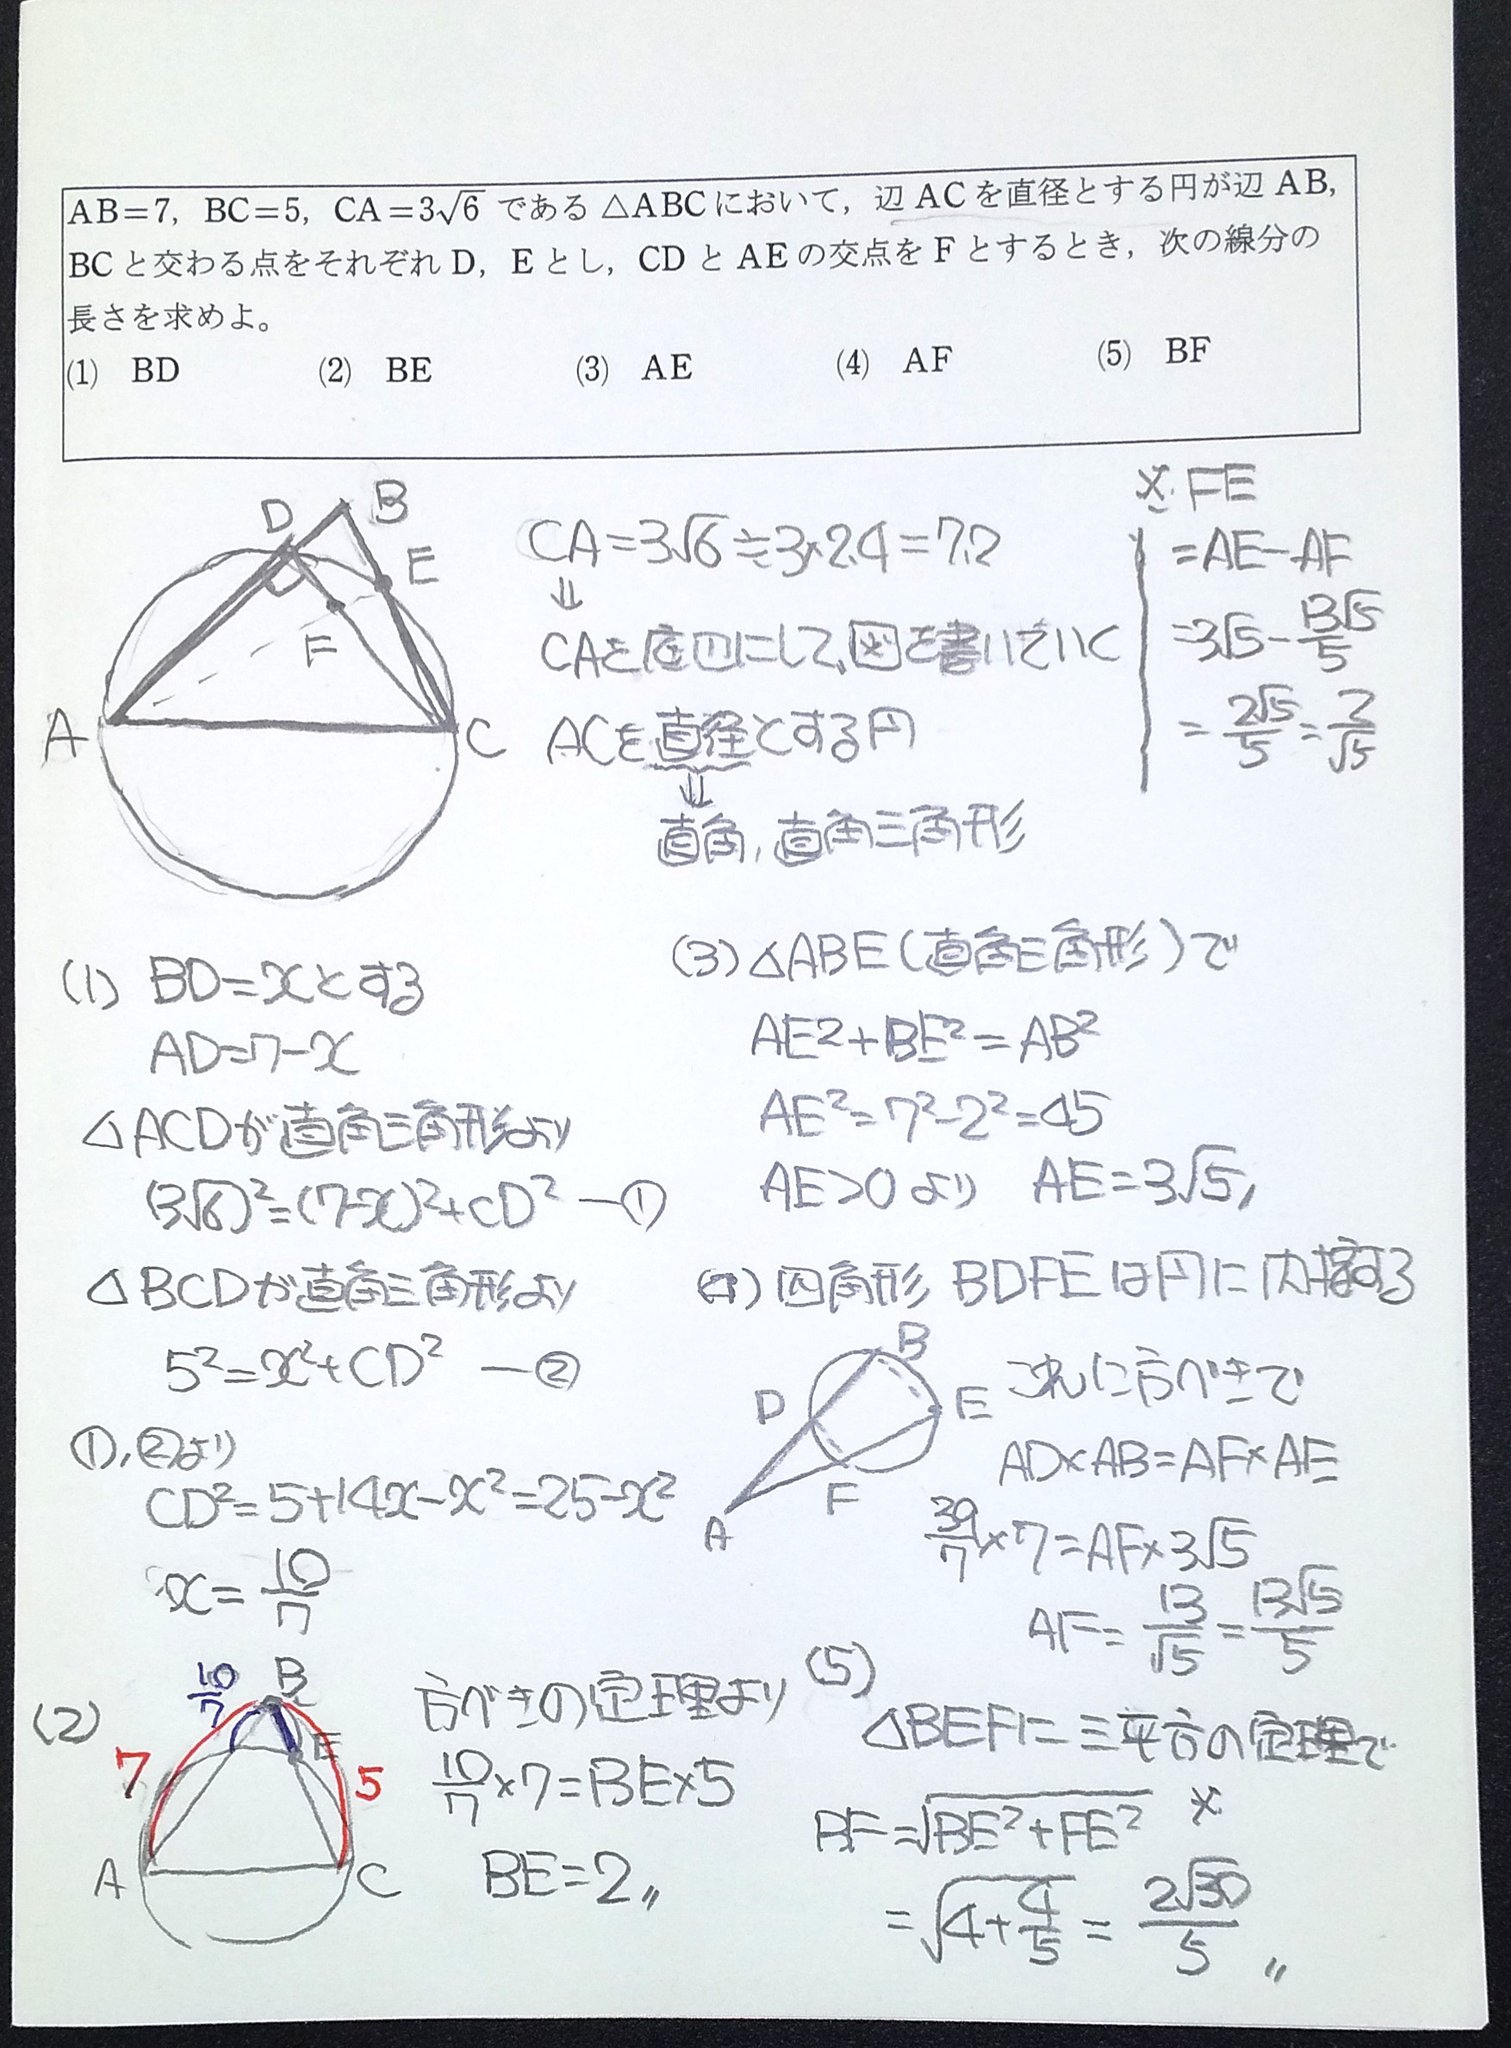 AB=7, BC=5, CA=3√6 である △ABC において, 辺 AC を直径とする円が辺 AB,
BC と交わる点をそれぞれ D, E とし, CD と AE の交点を F とするとき, 次の線分の
長さを求めよ。
(1) BD (2) BE (3) AE (4) AF (5) BF
D B
E
F
A C
CA=3√6≒3×2.4=7.2
⇓
CAを底辺にして、図を書いていく
ACを直径とする円
⇓
直角, 直角三角形
※ FE
=AE-AF
=3√5-13√5/5
=2√5/5=2/√5
(1) BD=xとする
AD=7-x
△ACDが直角三角形より
(3√6)²=(7-x)²+CD² ―①
△BCDが直角三角形より
5²=x²+CD² ―②
①,②より
CD²=5+14x-x²=25-x²
x=10/7
(2)
10/7 B
E
7 5
A C
方べきの定理より
10/7×7=BE×5
BE=2〃
(3) △ABE(直角三角形)で
AE2+BE²=AB²
AE²=7²-2²=45
AE>0より AE=3√5,
(4) 四角形 BDFEは円に内接する
B
D E
F
A
これに方べきで
AD×AB=AF×AE
39/7×7=AF×3√5
AF=13/√5=13√5/5
(5)
△BEFに三平方の定理で
BF=√(BE²+FE²) ※
=√(4+4/5)=2√30/5〃